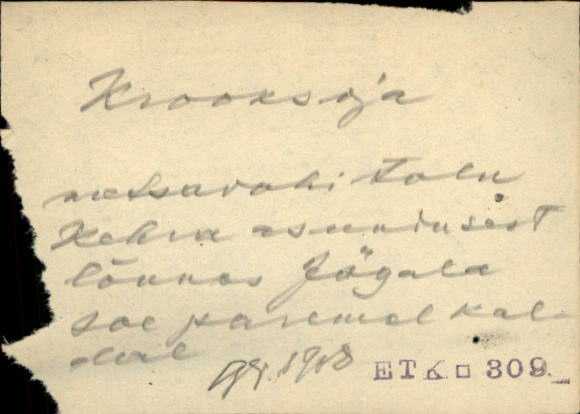 Krooksoja
metsavahi talu
Kehra asundusest
lõunas Jõgala
joe paremal kal-
dal
1918
ETK 309